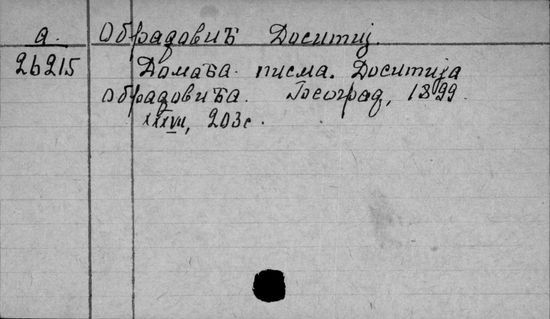 а. Обрадовић Доситиј.
26215 Домаћа писма. Доситија
Обрадовића. Београд, 1899.
XXXVII, 203с.